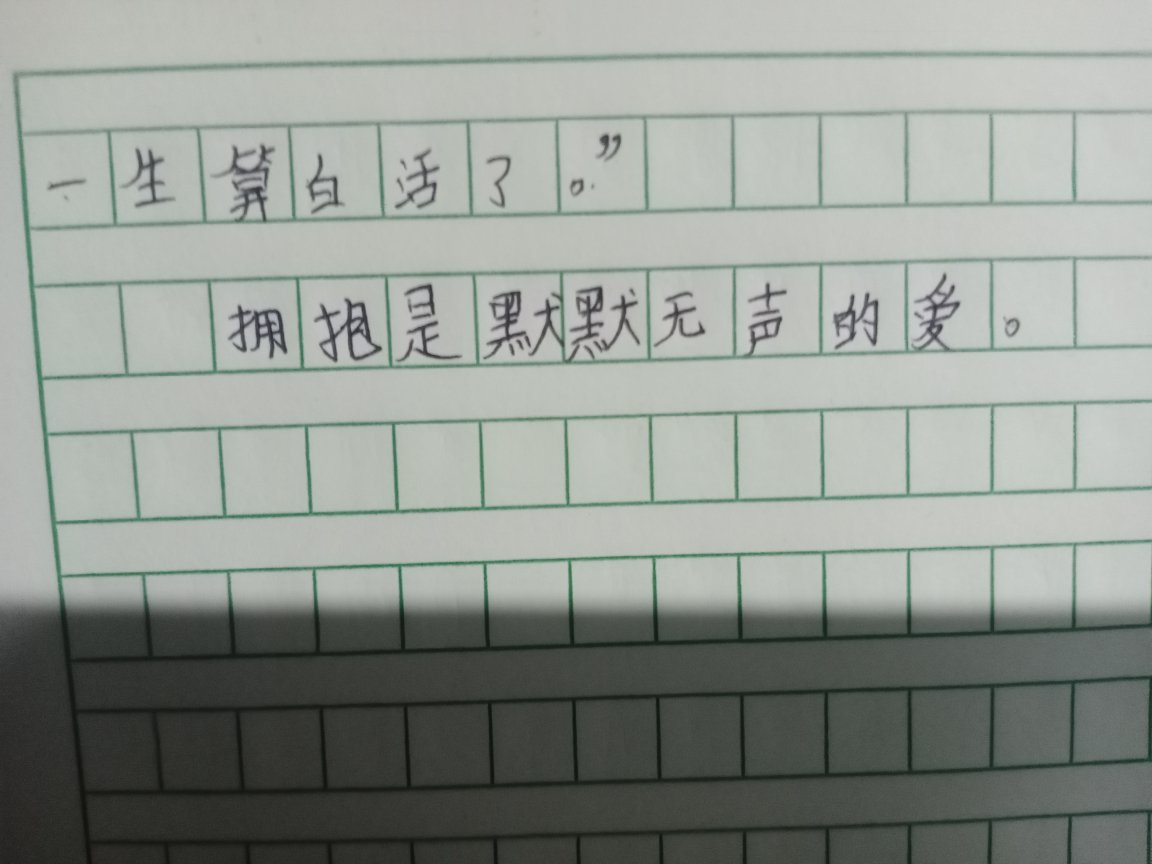 一生算白活了。”
拥抱是默默无声的爱。